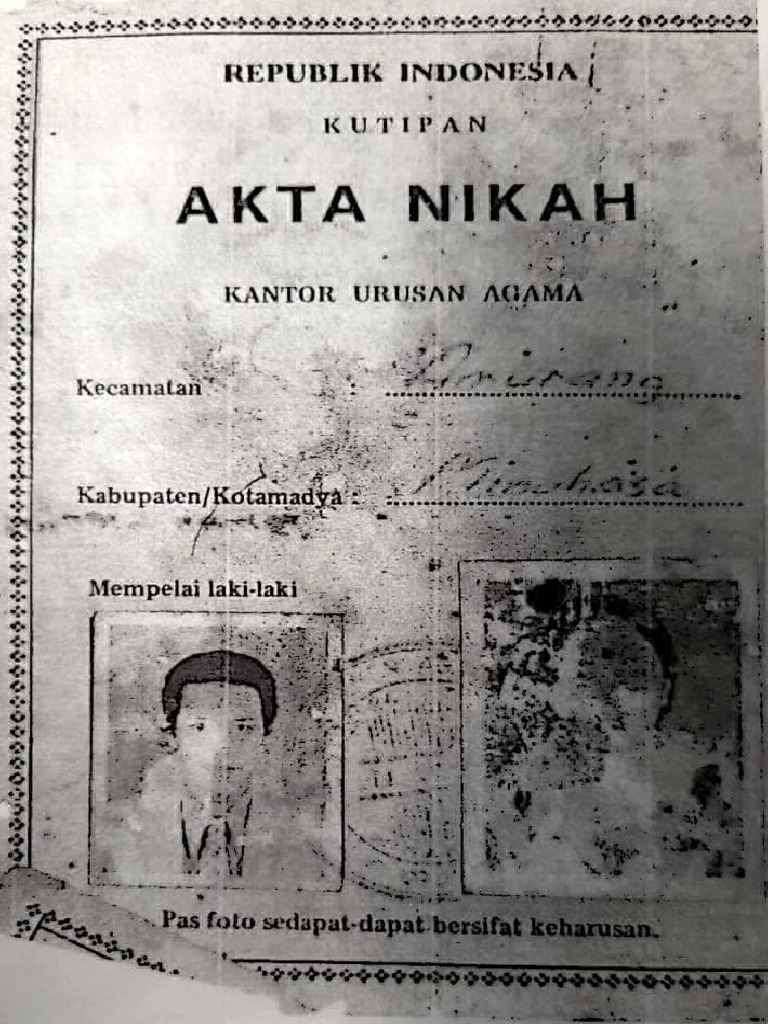 REPUBLIK INDONESIA
KUTIPAN
AKTA NIKAH
KANTOR URUSAN AGAMA
Kecamatan :
Kabupaten/Kotamadya : Minahasa
Mempelai laki-laki
Pas foto sedapat-dapat bersifat keharusan.